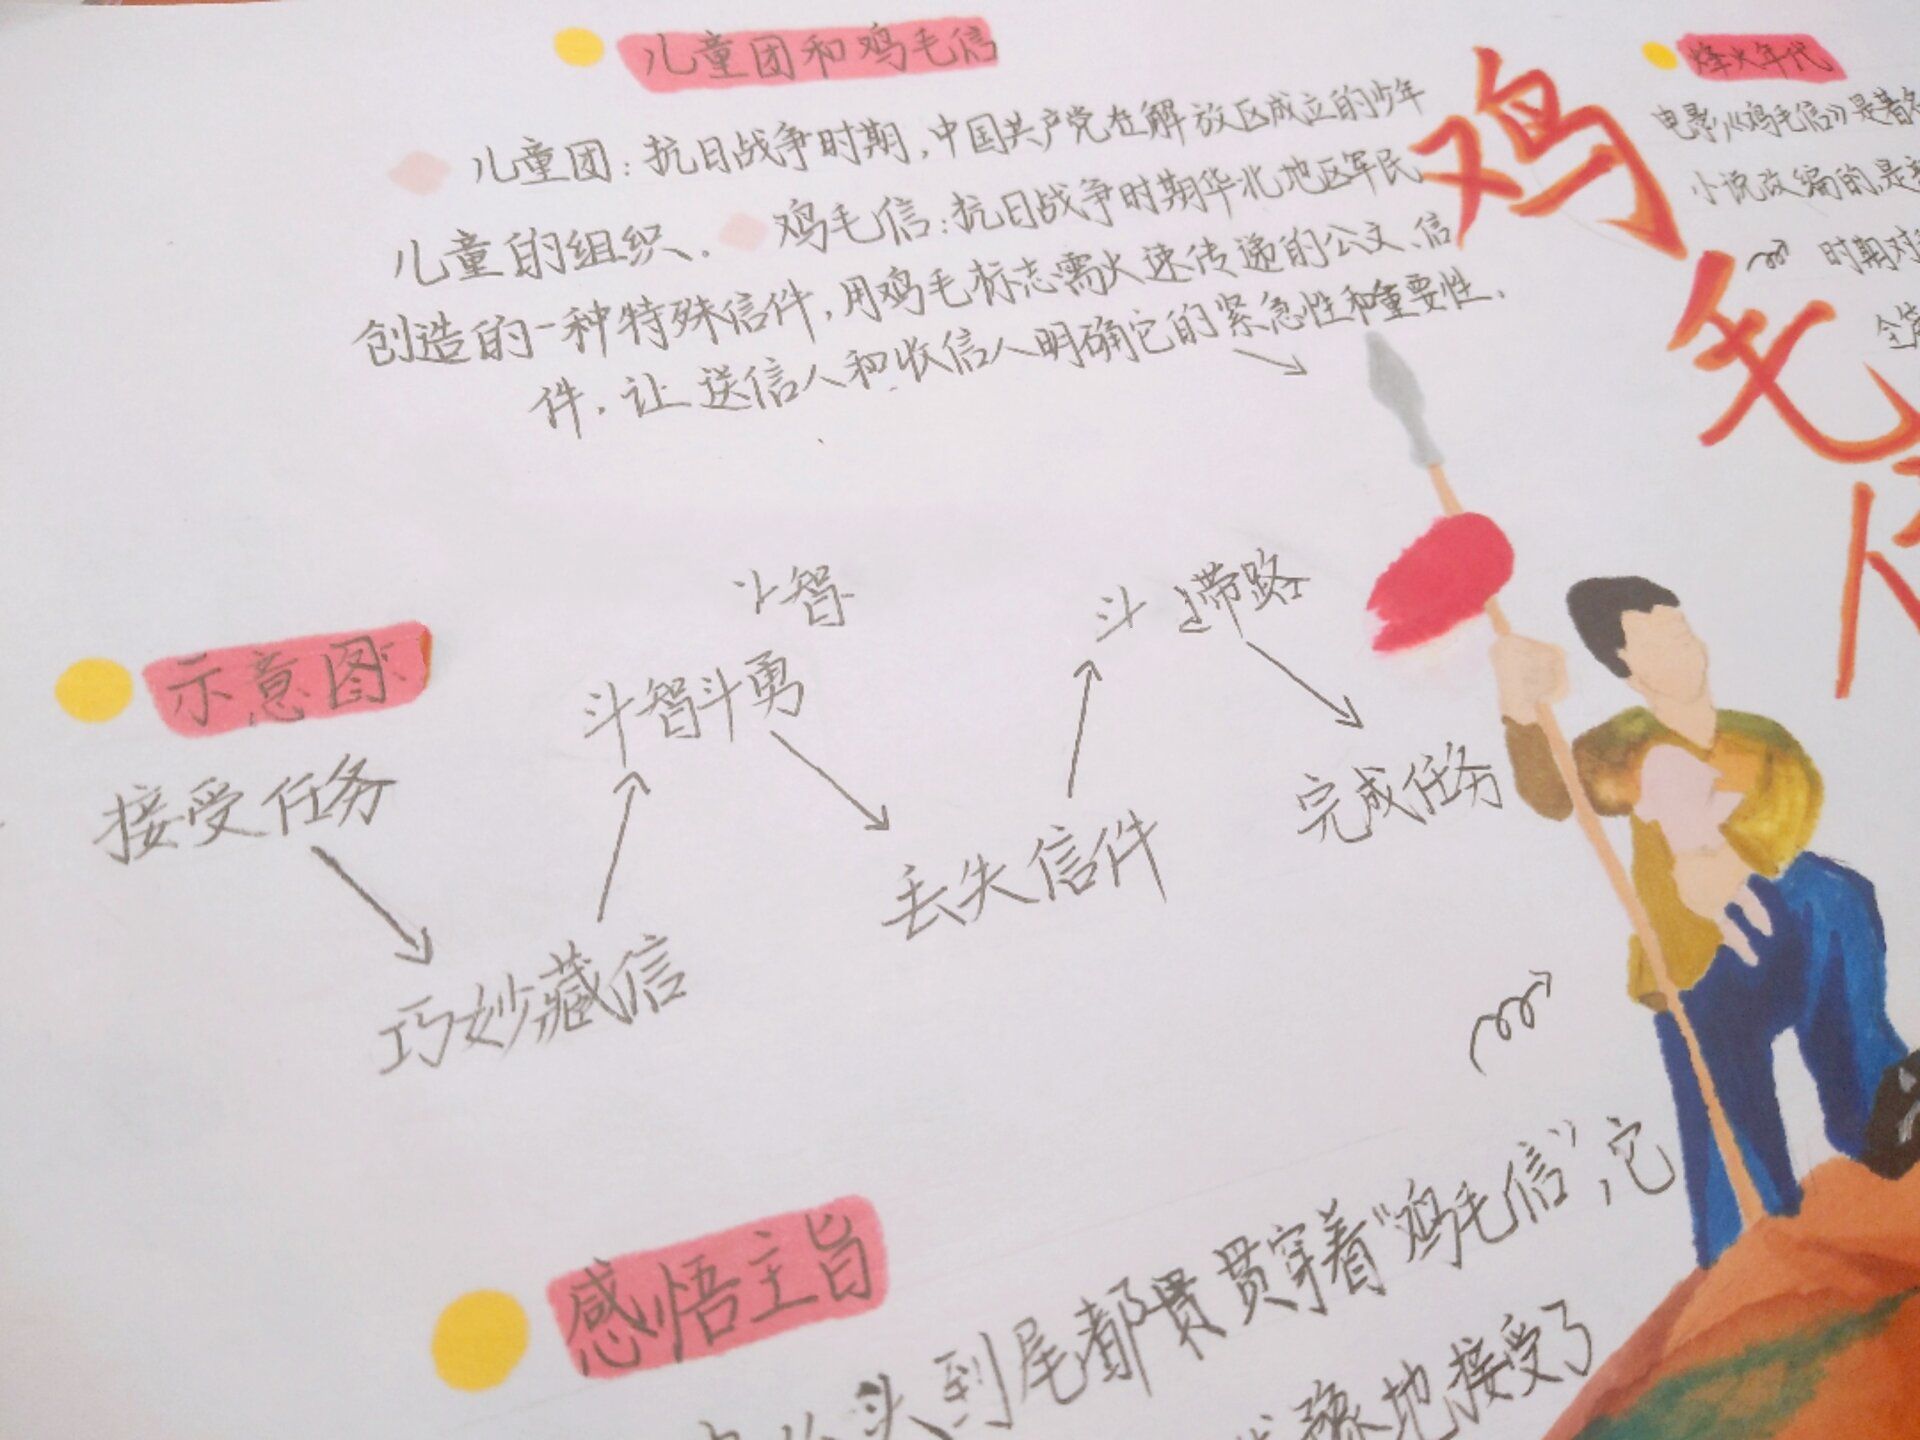 儿童团和鸡毛信
儿童团：抗日战争时期，中国共产党在解放区成立的少年
儿童的组织．鸡毛信：抗日战争时期华北地区军民
创造的一种特殊信件，用鸡毛标志需火速传递的公文、信
件．让送信人和收信人明确它的紧急性和重要性．
鸡毛信
烽火年代
电影《鸡毛信》是著名
小说改编的，是
时期对
全篇
示意图
接受任务
巧妙藏信
斗智斗勇
智
丢失信件
斗 带路
完成任务
感悟主旨
从头到尾都贯贯穿着“鸡毛信”，它
豫地接受了